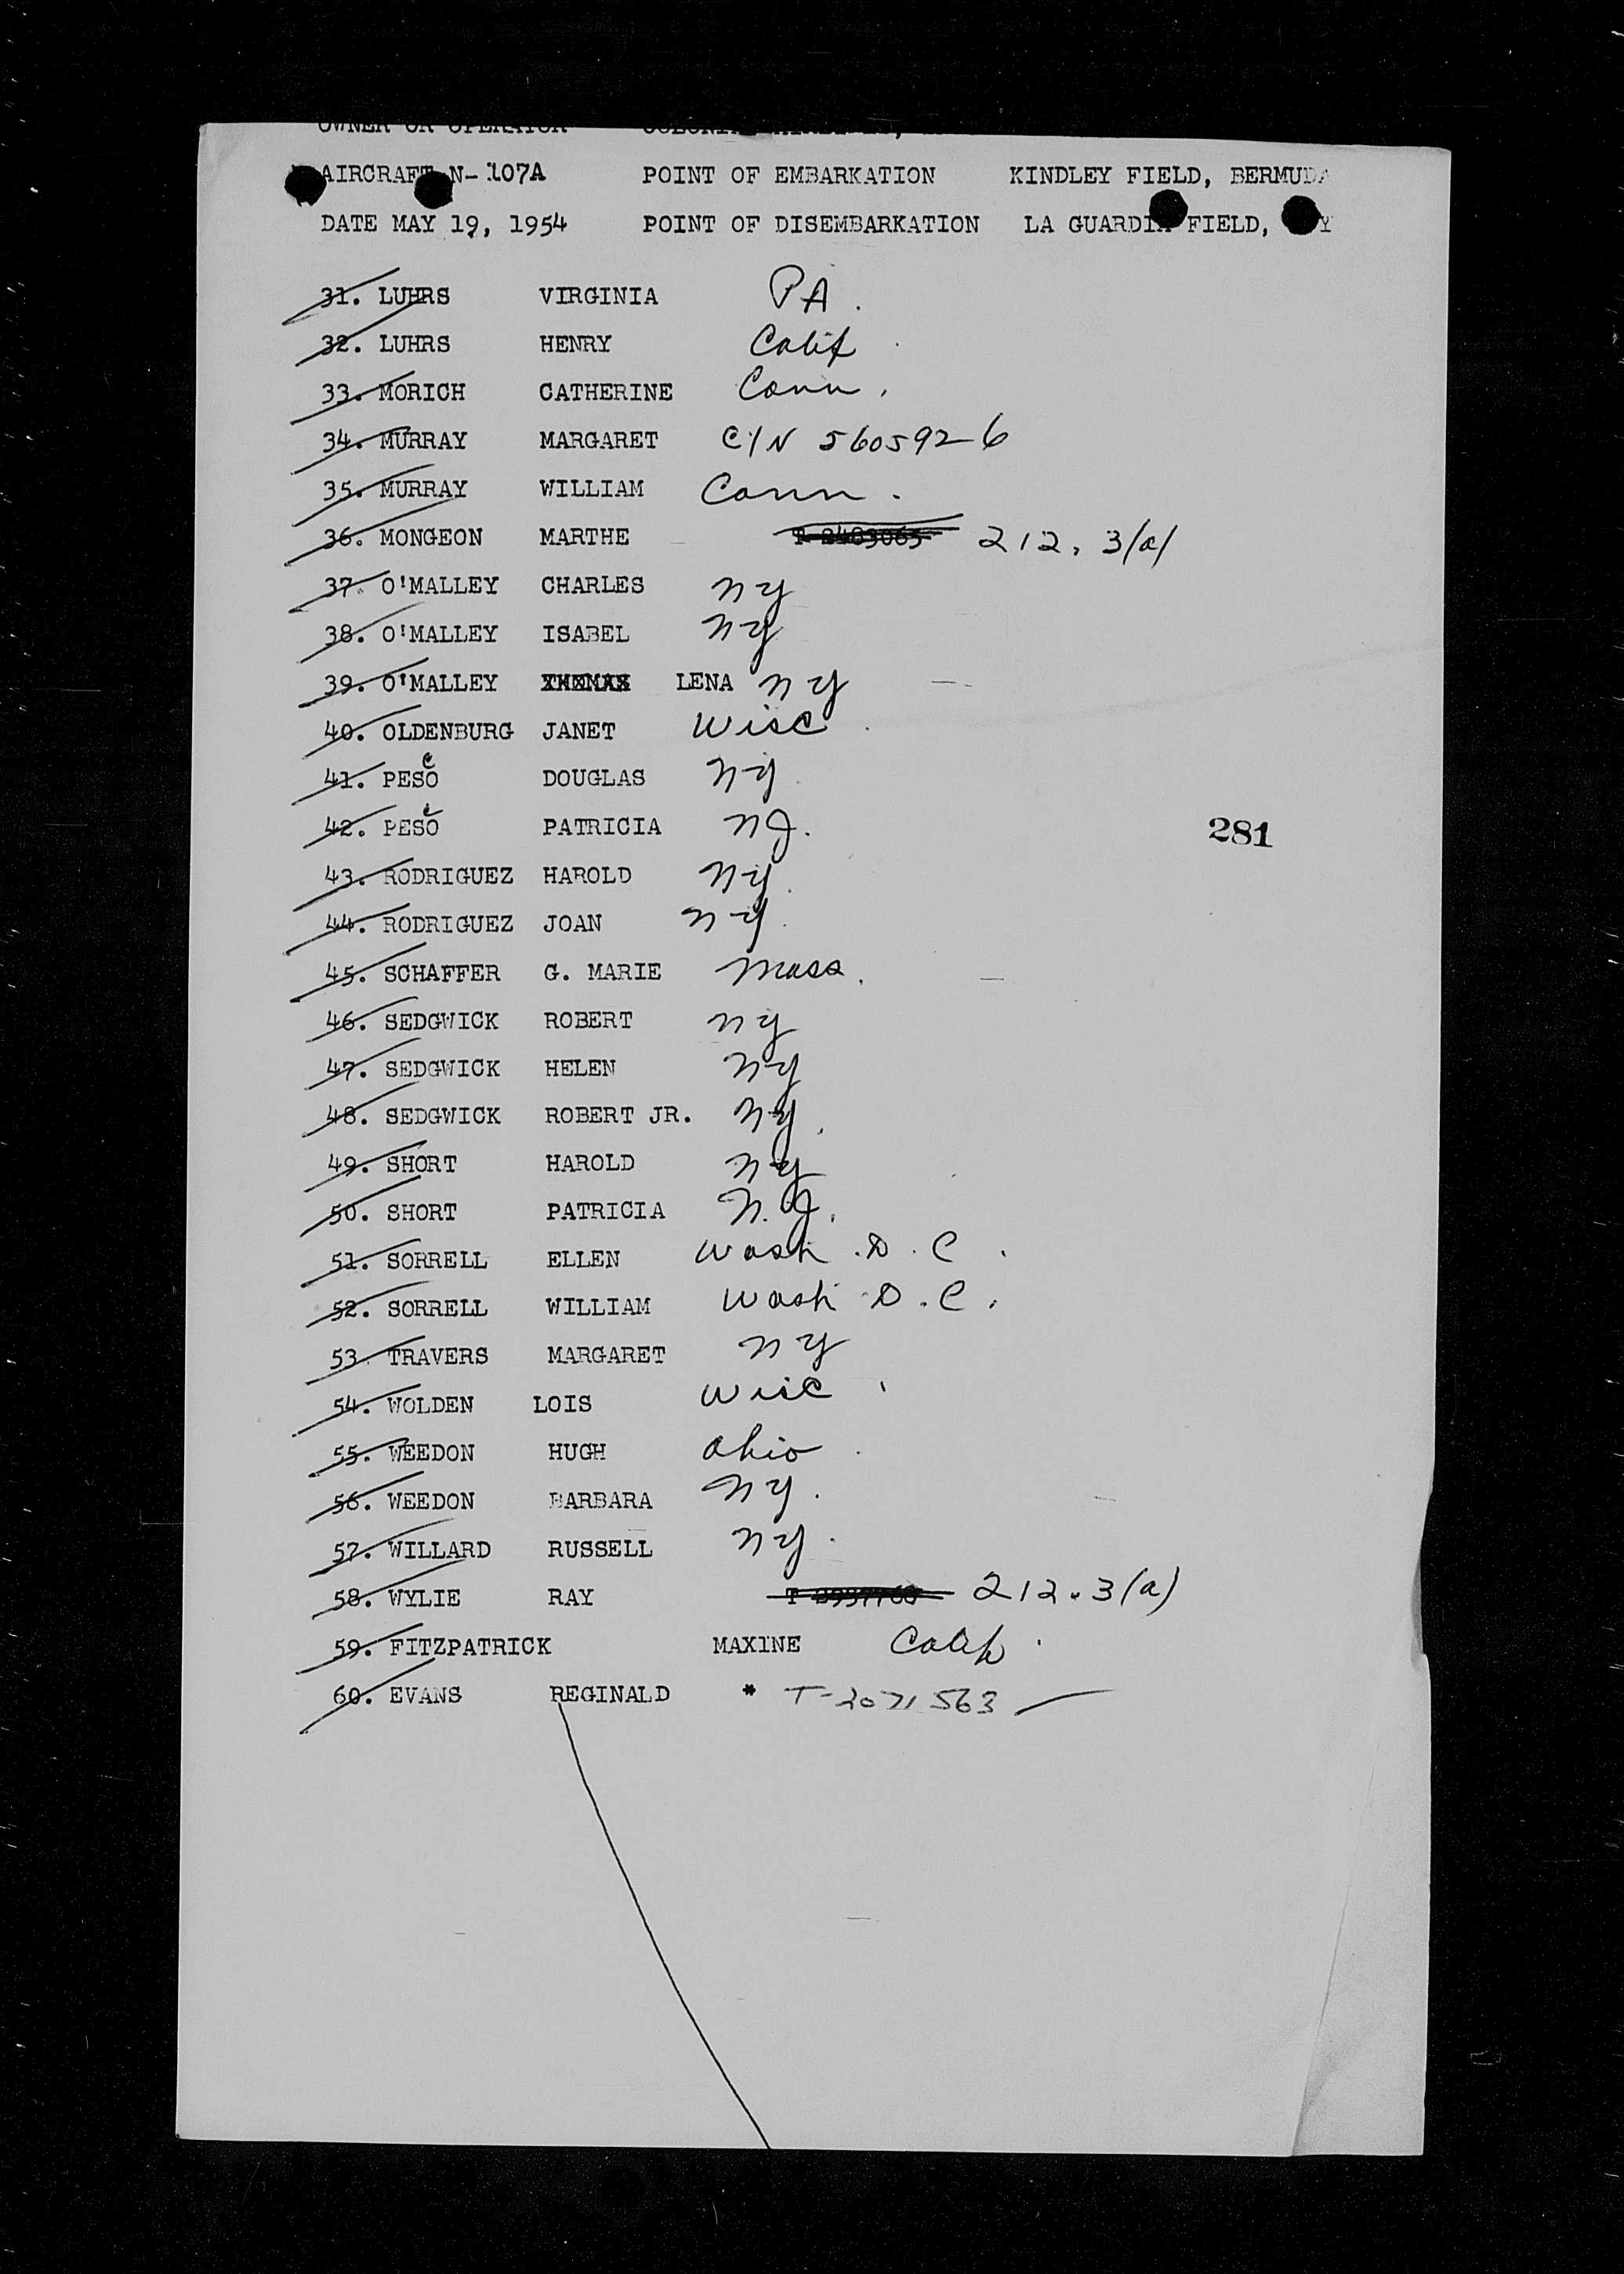 OWNER OR OPERATOR COLONIAL AIRLINES,
AIRCRAFT N-107A POINT OF EMBARKATION KINDLEY FIELD, BERMUDA
DATE MAY 19, 1954 POINT OF DISEMBARKATION LA GUARDIA FIELD, Y
31. LUHRS VIRGINIA PA.
32. LUHRS HENRY Calif
33. MORICH CATHERINE Conn.
34. MURRAY MARGARET C/N 5605926
35. MURRAY WILLIAM Conn.
36. MONGEON MARTHE 212.3(a)
37. O'MALLEY CHARLES NY
38. O'MALLEY ISABEL NY
39. O'MALLEY LENA NY
40. OLDENBURG JANET Wisc
41. PESO DOUGLAS NY
42. PESO PATRICIA NJ.
281
43. RODRIGUEZ HAROLD NY
44. RODRIGUEZ JOAN NY
45. SCHAFFER G. MARIE Mass.
46. SEDGWICK ROBERT NY
47. SEDGWICK HELEN NY
48. SEDGWICK ROBERT JR. NY.
49. SHORT HAROLD NY
50. SHORT PATRICIA N.J.
51. SORRELL ELLEN Wash. D.C.
52. SORRELL WILLIAM Wash D.C.
53. TRAVERS MARGARET NY
54. WOLDEN LOIS Wisc
55. WEEDON HUGH Ohio
56. WEEDON BARBARA NY.
57. WILLARD RUSSELL NY.
58. WYLIE RAY 212.3(a)
59. FITZPATRICK MAXINE Calif
60. EVANS REGINALD * T-2071563